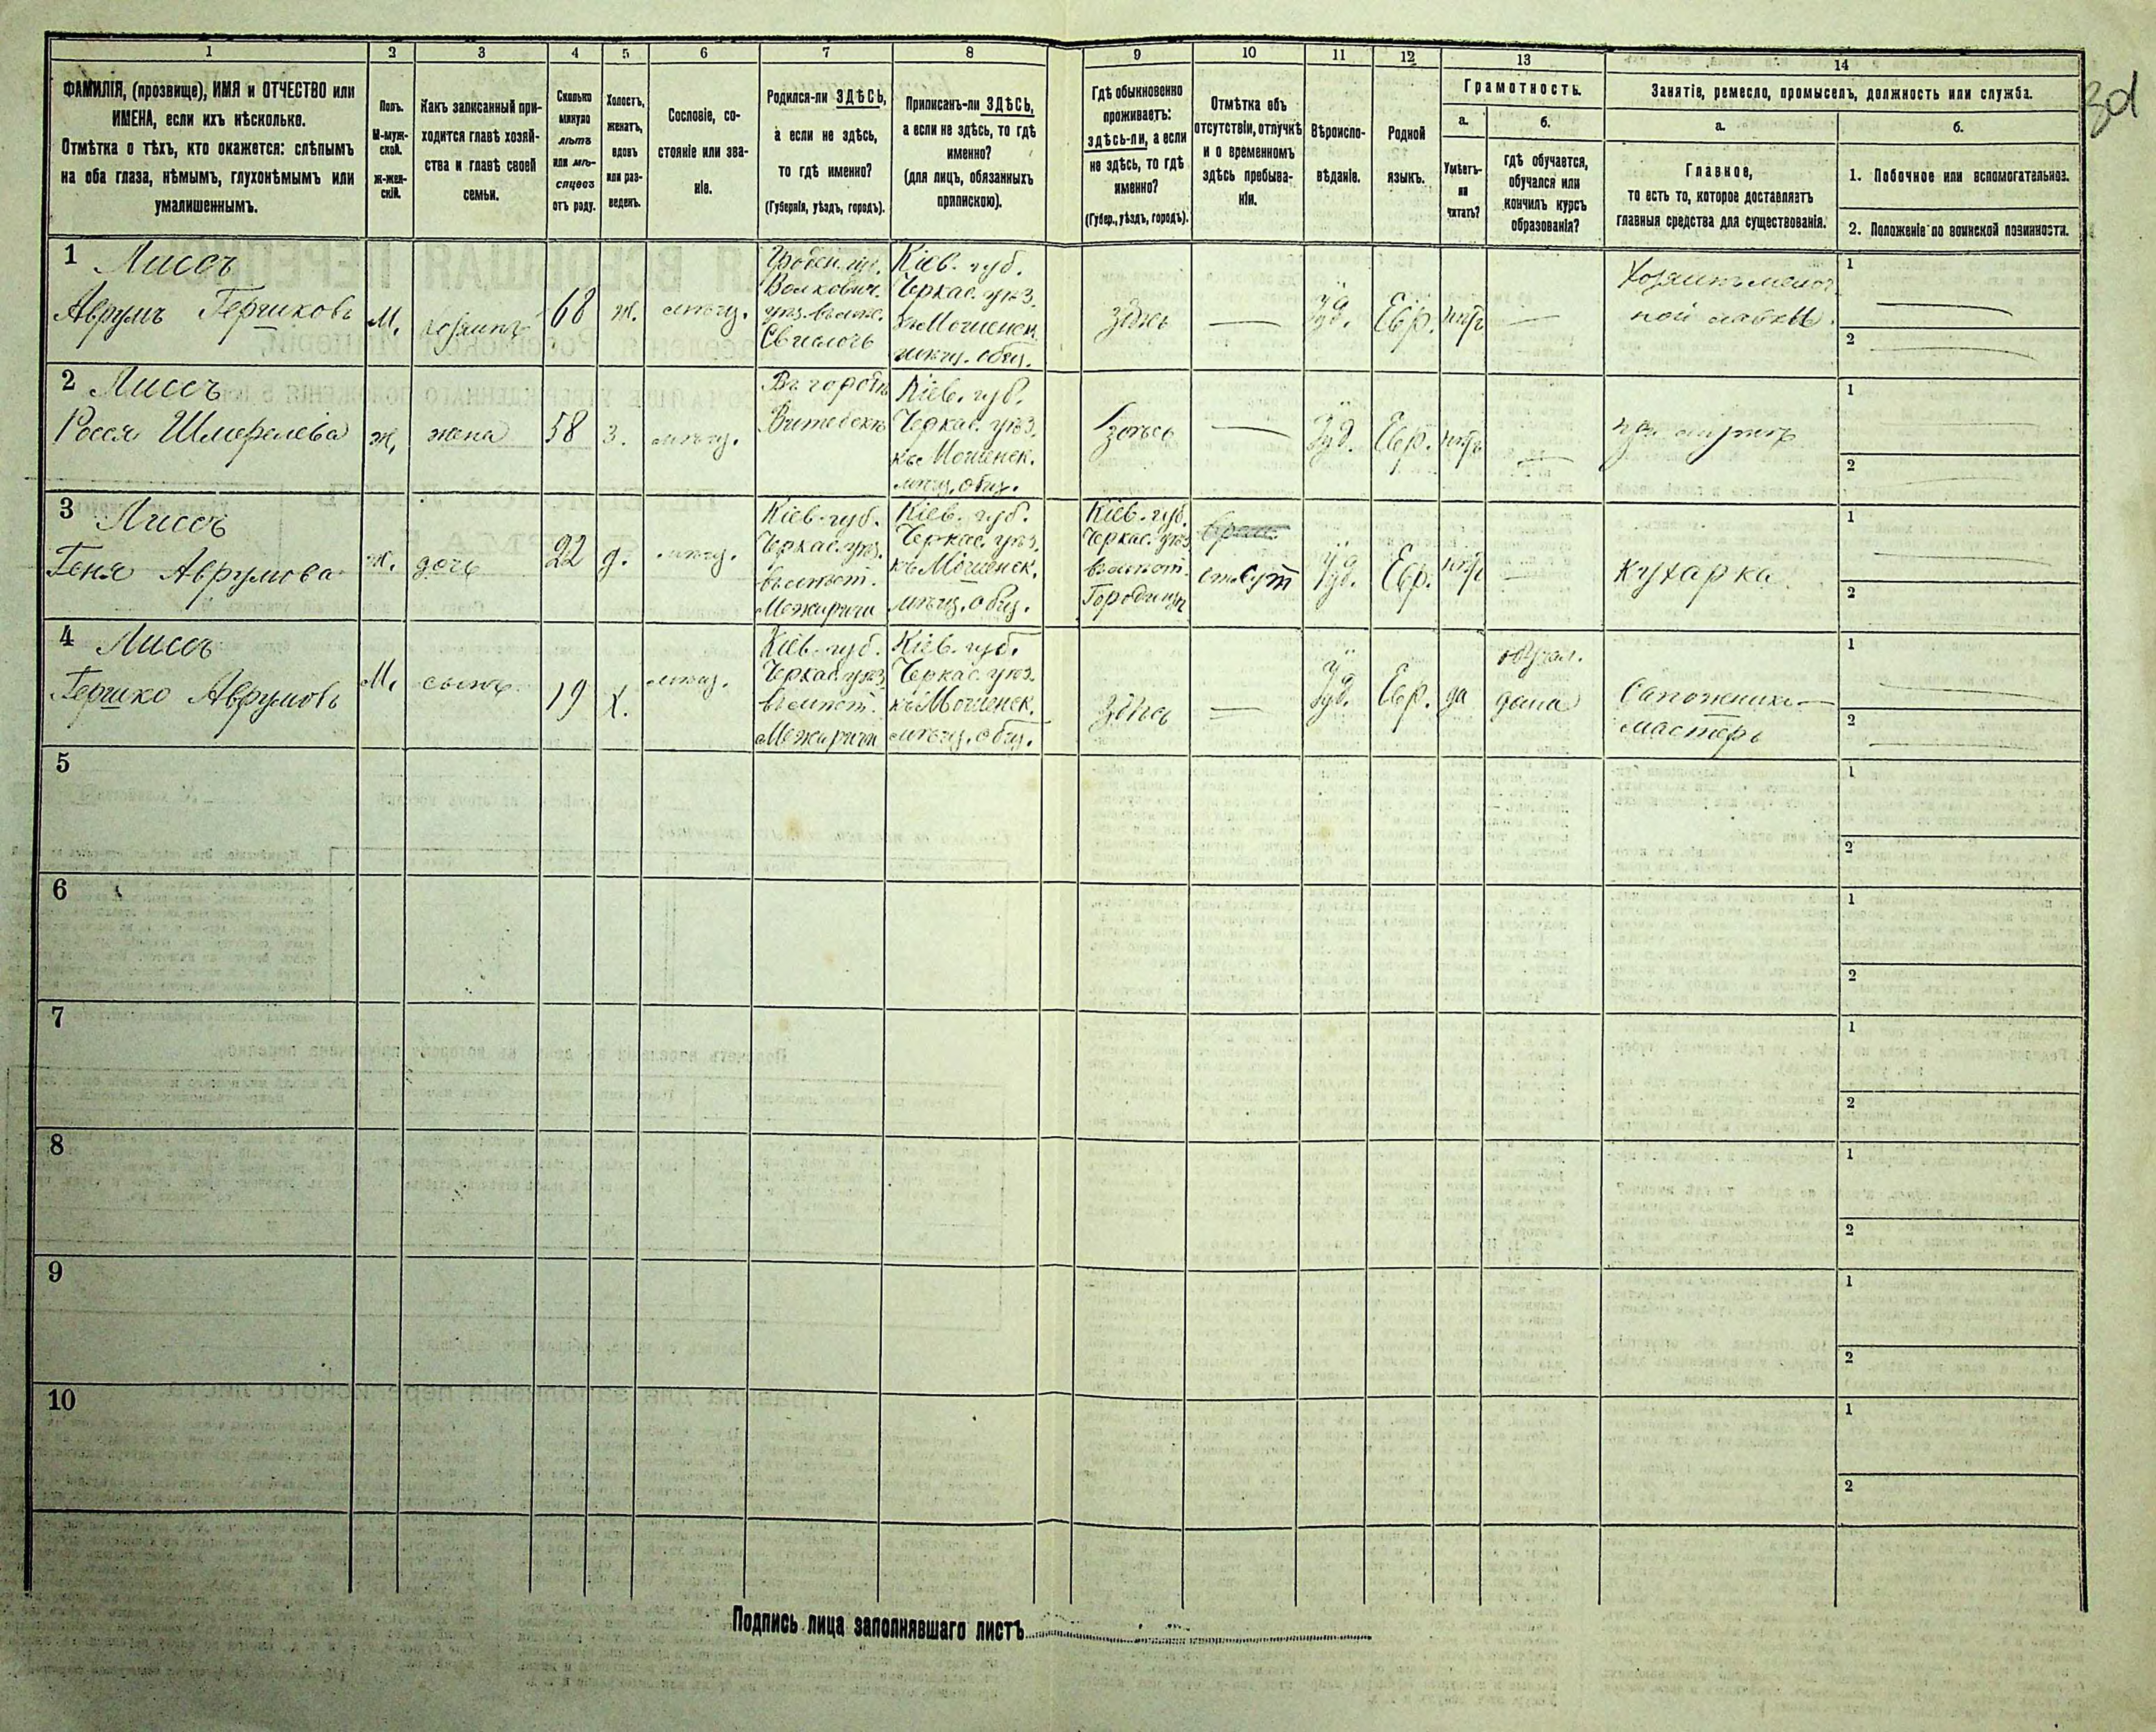 1 2 3 4 5 6 7 8 9 10 11 12 13 14
ФАМИЛІЯ, (прозвище), ИМЯ и ОТЧЕСТВО или
ИМЕНА, если ихъ нѣсколько.
Отмѣтка о тѣхъ, кто окажется: слѣпымъ
на оба глаза, нѣмымъ, глухонѣмымъ или
умалишеннымъ.
Полъ.
М-муж-
ской.
Ж-жен-
скій.
Какъ записанный при-
ходится главѣ хозяй-
ства и главѣ своей
семьи.
Сколько
минуло
лѣтъ
или мѣ-
сяцевъ
отъ роду.
Холостъ,
женатъ,
вдовъ
или раз-
веденъ.
Сословіе, со-
стояніе или зва-
ніе.
Родился-ли ЗДѢСЬ,
а если не здѣсь,
то гдѣ именно?
(Губернія, уѣздъ, городъ).
Приписанъ-ли ЗДѢСЬ,
а если не здѣсь, то гдѣ
именно?
(для лицъ, обязанныхъ
припискою).
Гдѣ обыкновенно
проживаетъ:
здѣсь-ли, а если
не здѣсь, то гдѣ
именно?
(Губер., уѣздъ, городъ).
Отмѣтка объ
отсутствіи, отлучкѣ
и о временномъ
здѣсь пребыва-
ніи.
Вѣроиспо-
вѣданіе.
Родной
языкъ.
Грамотность.
а.
Умѣетъ-
ли
читать?
б.
гдѣ обучается,
обучался или
кончилъ курсъ
образованія?
Занятіе, ремесло, промыселъ, должность или служба.
а.
Главное,
то есть то, которое доставляетъ
главныя средства для существованія.
б.
1. Побочное или вспомогательное.
2. Положеніе по воинской повинности.
30
1 Лиссъ
Аврумъ Гершковъ
М.
хозяинъ
68
ж.
мѣщ.
Гроден. губ.
Волкович.
уѣз. въ мѣс.
Свислочь
Кіев. губ.
Черкас. уѣз.
къ Мошенск.
мѣщ. общ.
здѣсь
—
Іуд.
Евр.
нѣтъ
—
Хозяинъ мелоч-
ной лавки.
1
2
2 Лиссъ
Рося Шмерелева
ж,
жена
58
з.
мѣщ.
Въ городѣ
Витебскѣ
Кіев. губ.
Черкас. уѣз.
къ Мошенск.
мѣщ. общ.
здѣсь
—
Іуд.
Евр.
нѣтъ
—
при мужѣ
1
2
3 Лиссъ
Геня Аврумова
ж.
дочь
22
д.
мѣщ.
Кіев. губ.
Черкас. уѣз.
въ мѣст.
Межиричи
Кіев. губ.
Черкас. уѣз.
къ Мошенск.
мѣщ. общ.
Кіев. губ.
Черкас. уѣз.
въ мѣст.
Городищѣ
отсут
Іуд.
Евр.
нѣтъ
—
кухарка
1
2
4 Лиссъ
Гершко Аврумовъ
М,
сынъ
19
х.
мѣщ.
Кіев. губ.
Черкас. уѣз.
въ мѣст.
Межиричи
Кіев. губ.
Черкас. уѣз.
къ Мошенск.
мѣщ. общ.
здѣсь
—
Іуд.
Евр.
да
обучал.
дома
Сапожникъ—
мастеръ
1
2
5
1
2
6
1
2
7
1
2
8
1
2
9
1
2
10
1
2
Подпись лица заполнявшаго листъ